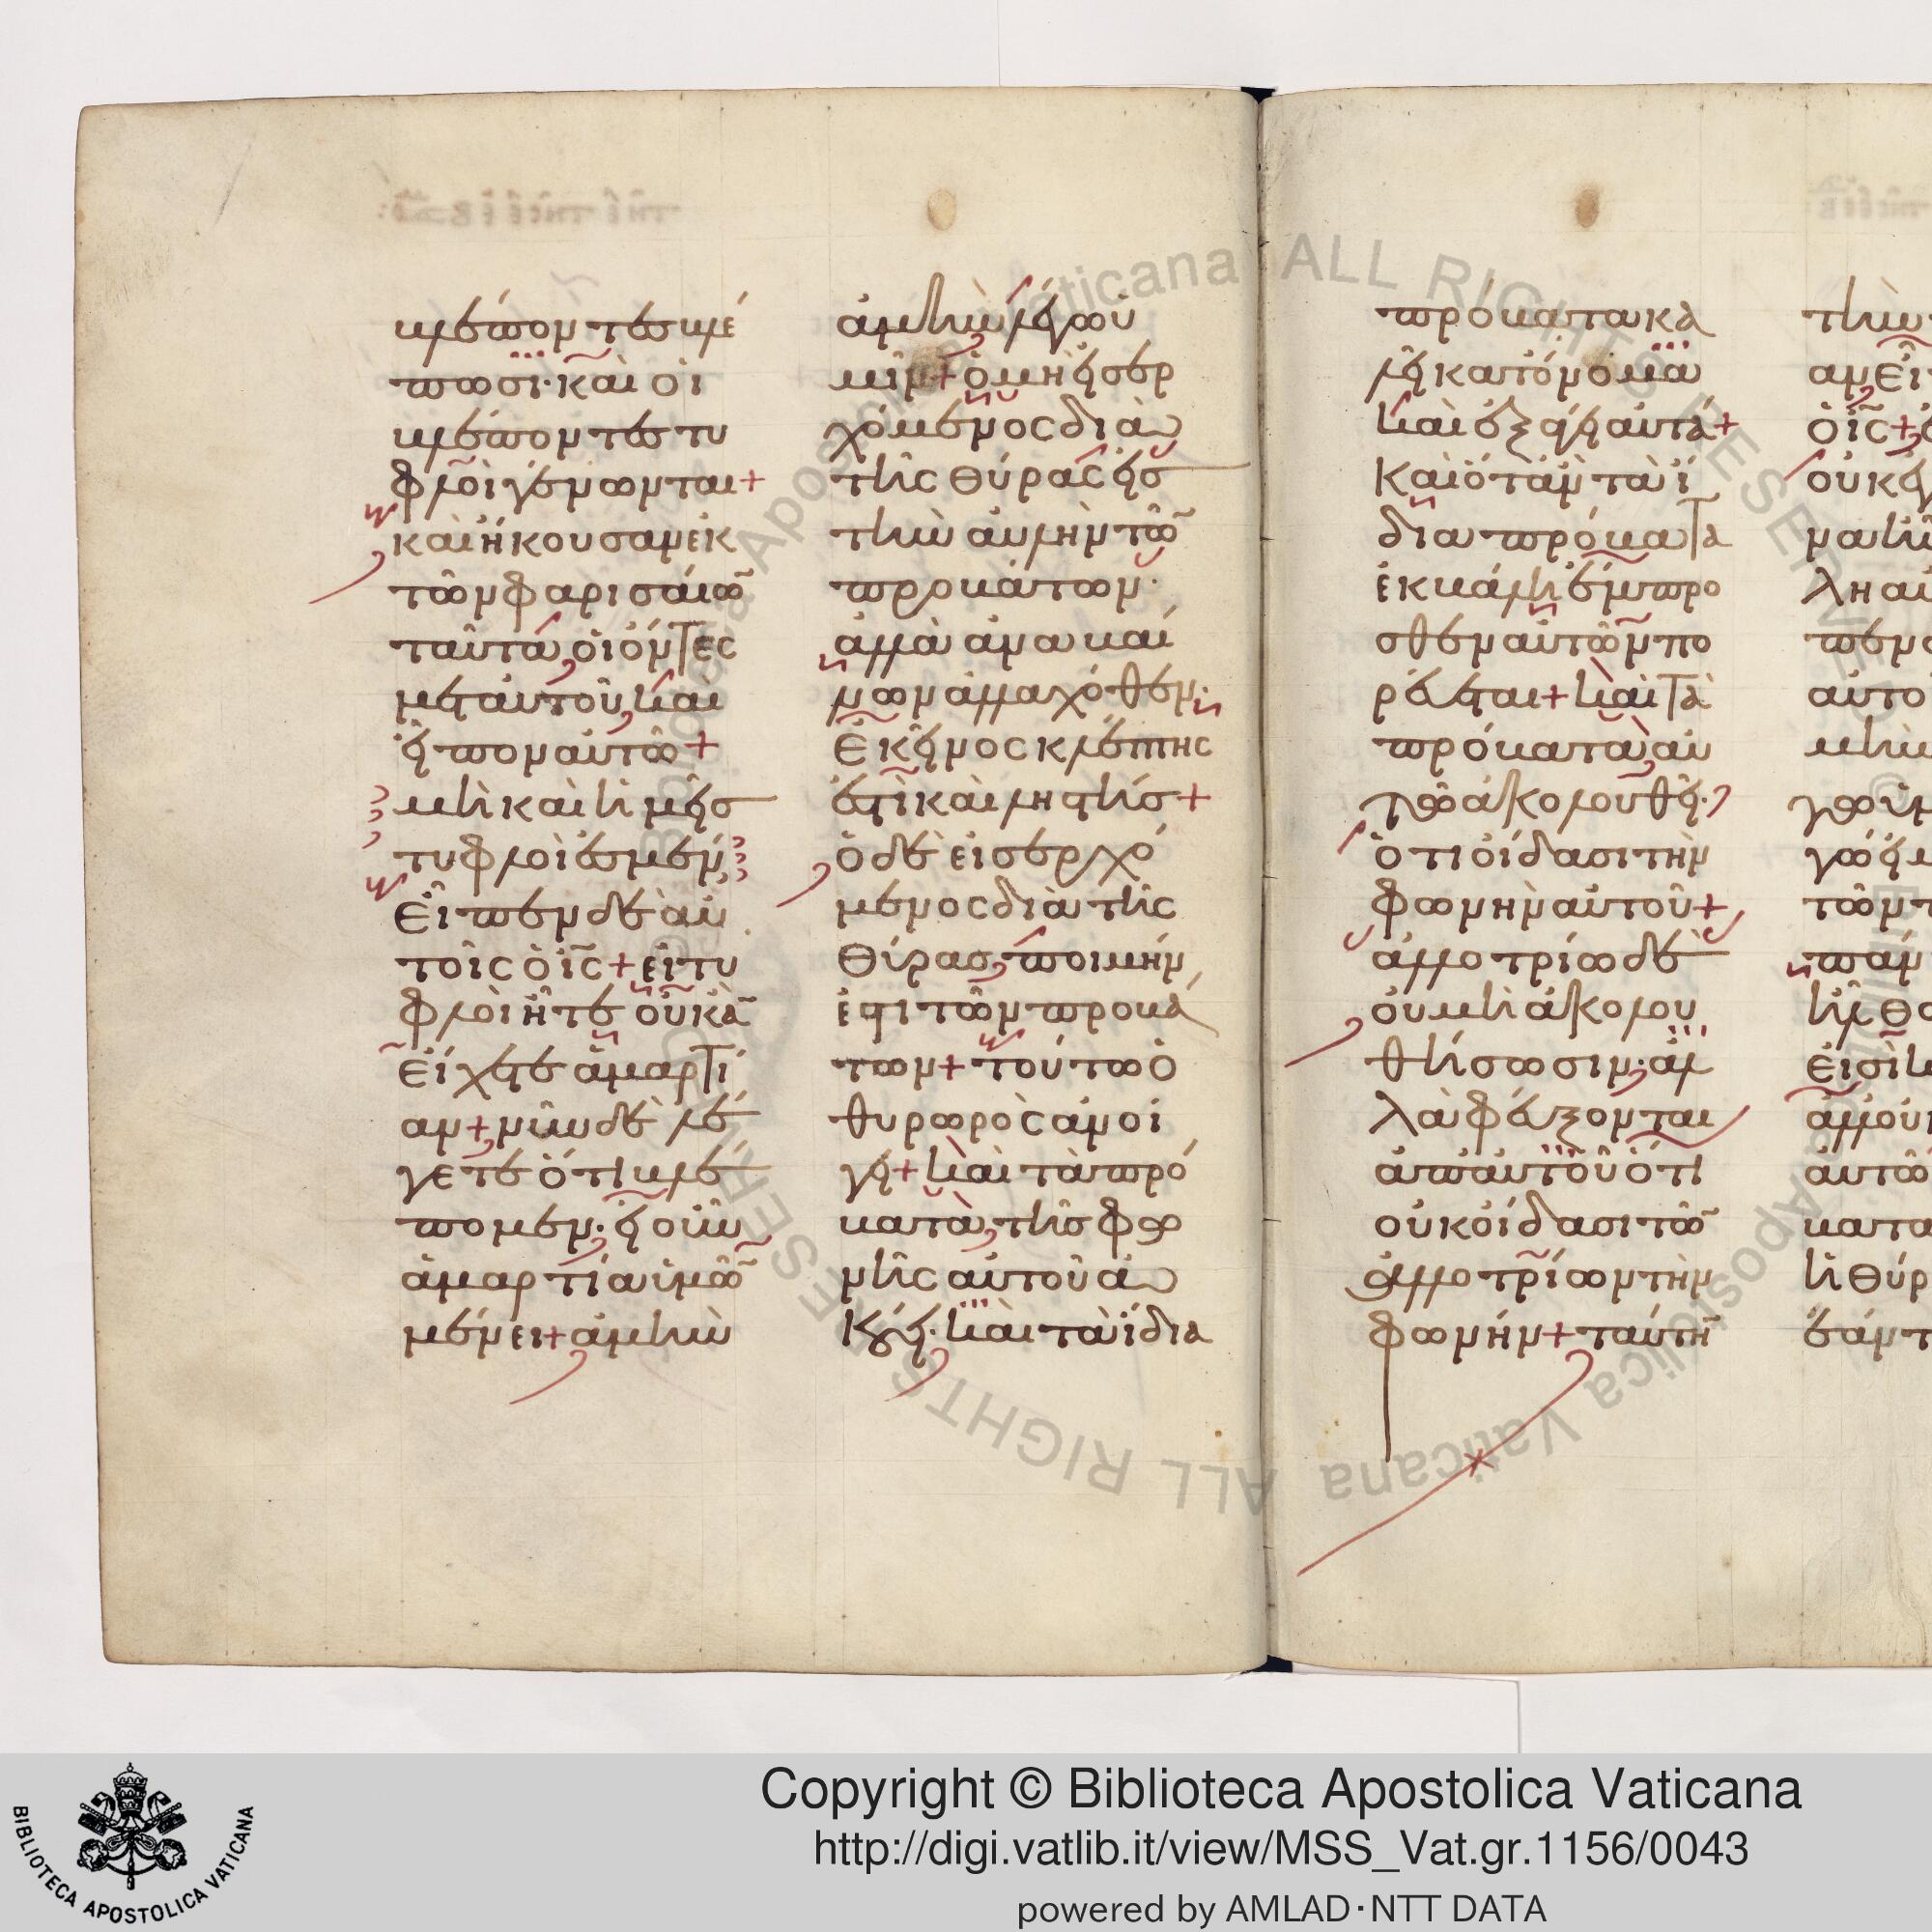 βλέποντες βλέ
πωσι· καὶ οἱ
βλέποντες τυ
φλοὶ γένωνται +
καὶ ἤκουσαν ἐκ
τῶν φαρισαίω̃
ταῦτα, οἱ ὄντες
μετ' αὐτοῦ, καὶ
εἶπον αὐτῶ +
μὴ καὶ ἡμεῖσ
τυφλοὶ ἐσμέν;
Εἶπεν δὲ αὐ
τοῖς ὁ ις + εἰ τυ
φλοὶ ἦτε οὐκ ἂ
εἴχετε ἁμαρτί
αν + νῦν δὲ λέ
γετε ὅτι βλέ
πομεν· ἡ οὖν
ἁμαρτία ὑμῶ̃
μένει + ἀμὴν
ἀμὴν λέγω ὑ
μῖν + ὁ μὴ εἰσερ
χόμενος διὰ
τῆς θύρας εἰσ
τὴν αὐλὴν τῶ̃
προβάτων·
ἀλλὰ ἀναβαί
νων ἀλλαχόθεν·
Ἐκεῖνος κλέπτης
ἐστὶ καὶ ληστήσ +
ὁ δὲ εἰσερχό
μενος διὰ τῆς
θύρας, ποιμήν
ἐστι τῶν προβά
των + τούτω ὁ
θυρωρὸς ἀνοί
γει + καὶ τὰ πρό
βατα, τῆσ φω
νῆς αὐτοῦ ἀ
κούει· καὶ τὰ ἴδια
πρόβατα κα
λεῖ κατ' ὄνομα
καὶ ἐξάγει αὐτά +
Καὶ ὅταν τὰ ἴ
δια πρόβατα
ἐκβάλη ἔμπρο
σθεν αὐτῶν πο
ρεύεται + καὶ τὰ
πρόβατα, αὐ
τῶ ἀκολουθεῖ·
ὅτι οἴδασι τὴν
φωνὴν αὐτοῦ +
ἀλλοτρίω δὲ
οὐ μὴ ἀκολου
θήσωσιν· ἀλ
λὰ φεύξονται
ἀπ' αὐτοῦ ὅτι
οὐκ οἴδασι τῶ̃
ἀλλοτρίων τὴν
φωνήν + ταύτη̃
τὴν
αν εἶ
ὁ ις +
οὐκ
λη
αὐτο
τῶν
πάν
εἰσὶ
ἀλλ' οὐ
αὐτῶ
βατα
ἡ θύρ
ALL RIGHTS RESERVED
Biblioteca Apostolica Vaticana
Copyright © Biblioteca Apostolica Vaticana
http://digi.vatlib.it/view/MSS_Vat.gr.1156/0043
powered by AMLAD·NTT DATA
BIBLIOTECA APOSTOLICA VATICANA